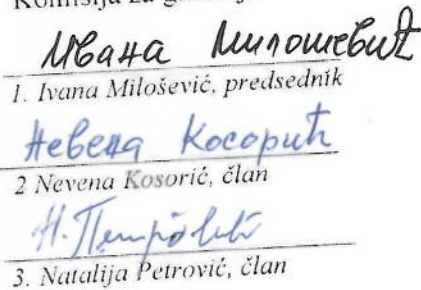 Komisija za
Ивана Милошевић
1. Ivana Milošević, predsednik
Невена Косорић
2 Nevena Kosorić, član
Н. Петровић
3. Natalija Petrović, član